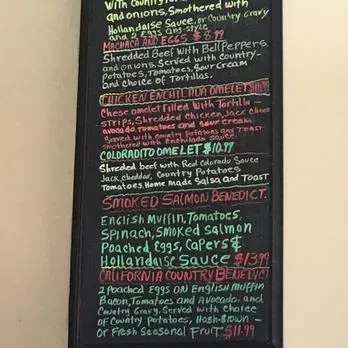 and onions, Smothered with
Hollandaise Sauce, or Country Gravy
and 2 Eggs any-style
MACHACA AND EGGS $8.99
Shredded Beef with Bell Peppers
and onions. Served with Country-
potatoes, Tomatoes, Sour cream
and choice of Tortillas.
CHICKEN ENCHILADA OMELET
Chese omelet Filled with Tortilla-
strips, Shredded chicken, Jack Cheese
avocado, tomatoes and sour cream.
Served with country Potatoes and TOAST
smothered with Enchilada Sauce.
COLORADITO OMELET $10.99
Shreded beef with Red Colorado Sauce
Jack, cheddar, Country Potatoes,
Tomatoes, Home made Salsa and TOAST
SMOKED SALMON BENEDICT.
English Muffin, Tomatoes,
Spinach, Smoked Salmon
Poached Eggs, Capers &
Hollandaise Sauce $13.99
CALIFORNIA COUNTRY BENEDICT
2 Poached Eggs on English Muffin
Bacon, Tomatoes and Avocado, and
Country Gravy. Served with Choice
of Country Potatoes, Hash-Brown-
or Fresh Seasonal Fruit $11.99